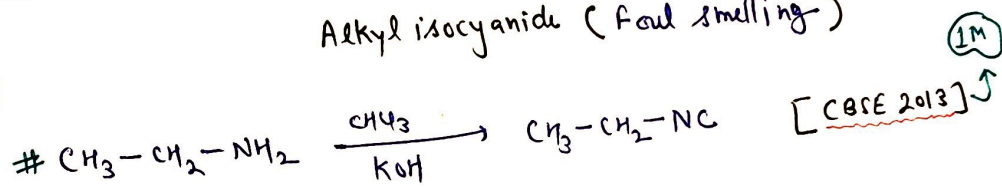 Alkyl isocyanide (foul smelling)
1M
# CH₃-CH₂-NH₂ CHCl3 KOH → CH₃-CH₂-NC [CBSE 2013]